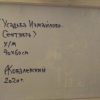 Усадьба Измайлово.
(Сентябрь)
х/м
40х60см
Жковалевский
2020г.